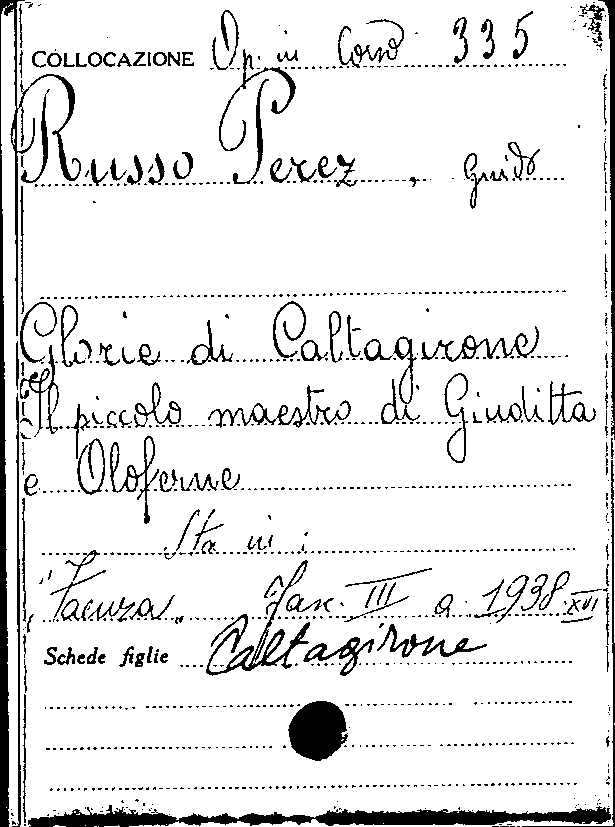 COLLOCAZIONE Op. in Corso 335
Russo Perez, Guido
Glorie di Caltagirone
Il piccolo maestro di Giuditta
e Oloferne
Sta in:
"Faenza" Fasc. III a. 1938 XVI
Schede figlie Caltagirone